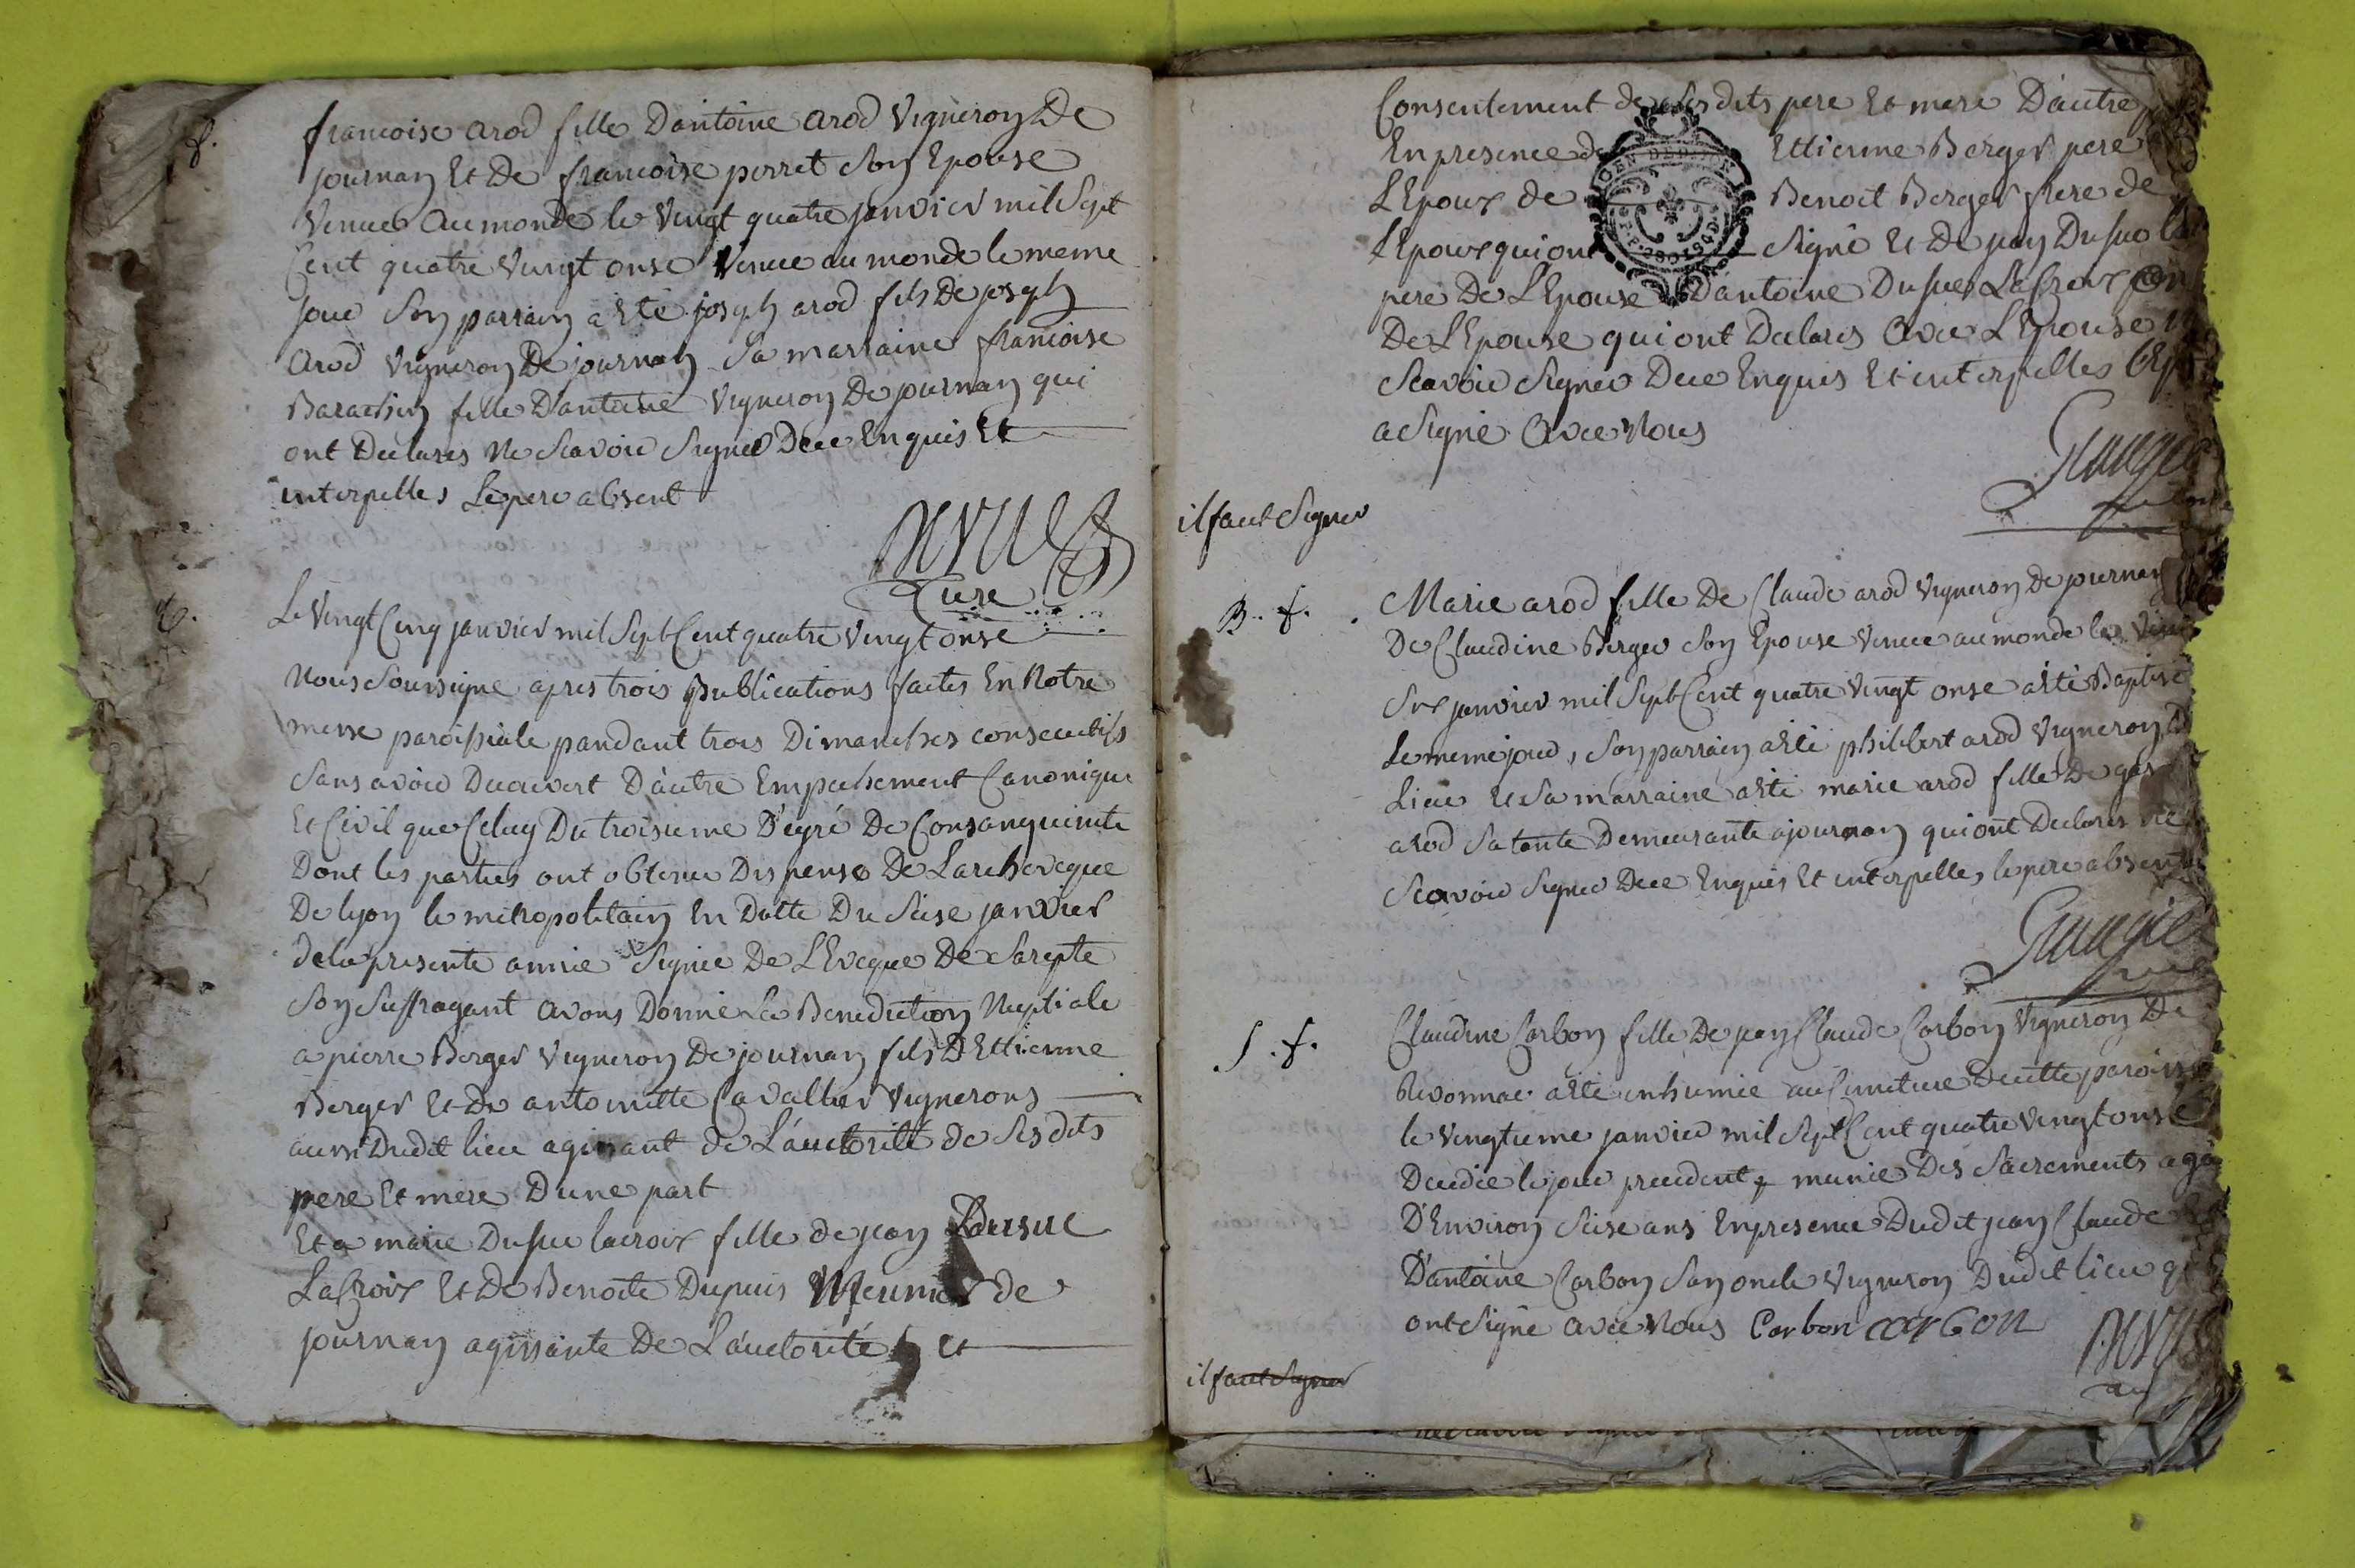 f.
francoise arod fille Dantoine arod Vigneron De
journan Et De francoise perret Son Epouse
Venue au monde le Vingt quatre janvier mil Sept
Cent quatre Vingt onse Venue au monde le meme
jour Son parrain a Eté joseph arod fils De joseph
arod Vigneron De journan Sa marraine francoise
Barachin fille D'antoine Vigneron De journan qui
ont Declarés Ne Scavoir Signer De ce Enquis Et
interpellés Le pere absent
Curé
Le Vingt Cinq janvier mil Sept Cent quatre Vingt onse
Nous Soussigné apres trois publications faites En Notre
messe paroissiale pandant trois Dimanches consecutifs
Sans avoir Decouvert D'autre Empechement Canonique
Et Civil que Celuy Du troisieme Dégré De Consanguinité
Dont les parties ont obtenu Dispense De Larcheveque
De lyon le metropolitain En Datte Du Seise janvier
de la presente année Signée De L'Eveque De Sarepte
Son Suffragant avons Donné La Benediction Nuptiale
a pierre Berger Vigneron De journan fils D'Ettienne
Berger Et De antoinette Cavallier Vignerons
aussi Dudit lieu agissant de L'auctorité de Ses dits
pere Et mere D'une part
Et a marie Dusuc lacroix fille de jean Dusuc
LaCroix Et De Benoite Dupuis Meunier de
journan agissante De L'auctorité Et
Consentement de Ses dits pere Et mere D'autre
En presence de Ettienne Berger pere
L'Epoux de Benoit Berger frere de
L'Epoux qui ont Signé Et De jean Dusuc
pere De L'Epouse D'antoine Dusuc LaCroix
De L'Epouse qui ont Declarés avec L'Epouse
Scavoir Signer De ce Enquis Et interpellés
a Signé avec Nous
il faut Signer
B. f.
Marie arod fille De Claude arod Vigneron De journan
De Claudine Berger Son Epouse Venue au monde le
Six janvier mil Sept Cent quatre Vingt onse a Eté Baptisé
Le meme jour, Son parrain a Eté philibert arod Vigneron
Lieu Et Sa marraine a Eté marie arod fille De
arod Sa tante Demeurante a journan qui ont Declarés ne
Scavoir Signer De ce Enquis Et interpellés, le pere absent
S. f.
Claudine Carbon fille De jean Claude Carbon Vigneron De
Revonnac a Eté inhumée au Cimetiere De cette paroisse
le Vingtieme janvier mil Sept Cent quatre Vingt onse
Decedée le jour precedent, munie Des Sacrements
D'Environ Seise ans En presence Dudit jean Claude
D'antoine Carbon Son oncle Vigneron Dudit lieu
ont Signé avec Nous Carbon carbon
il faut Signer